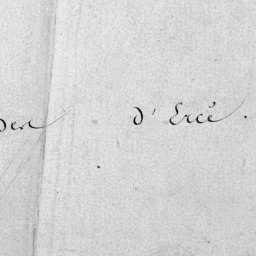 den d'Ercé.